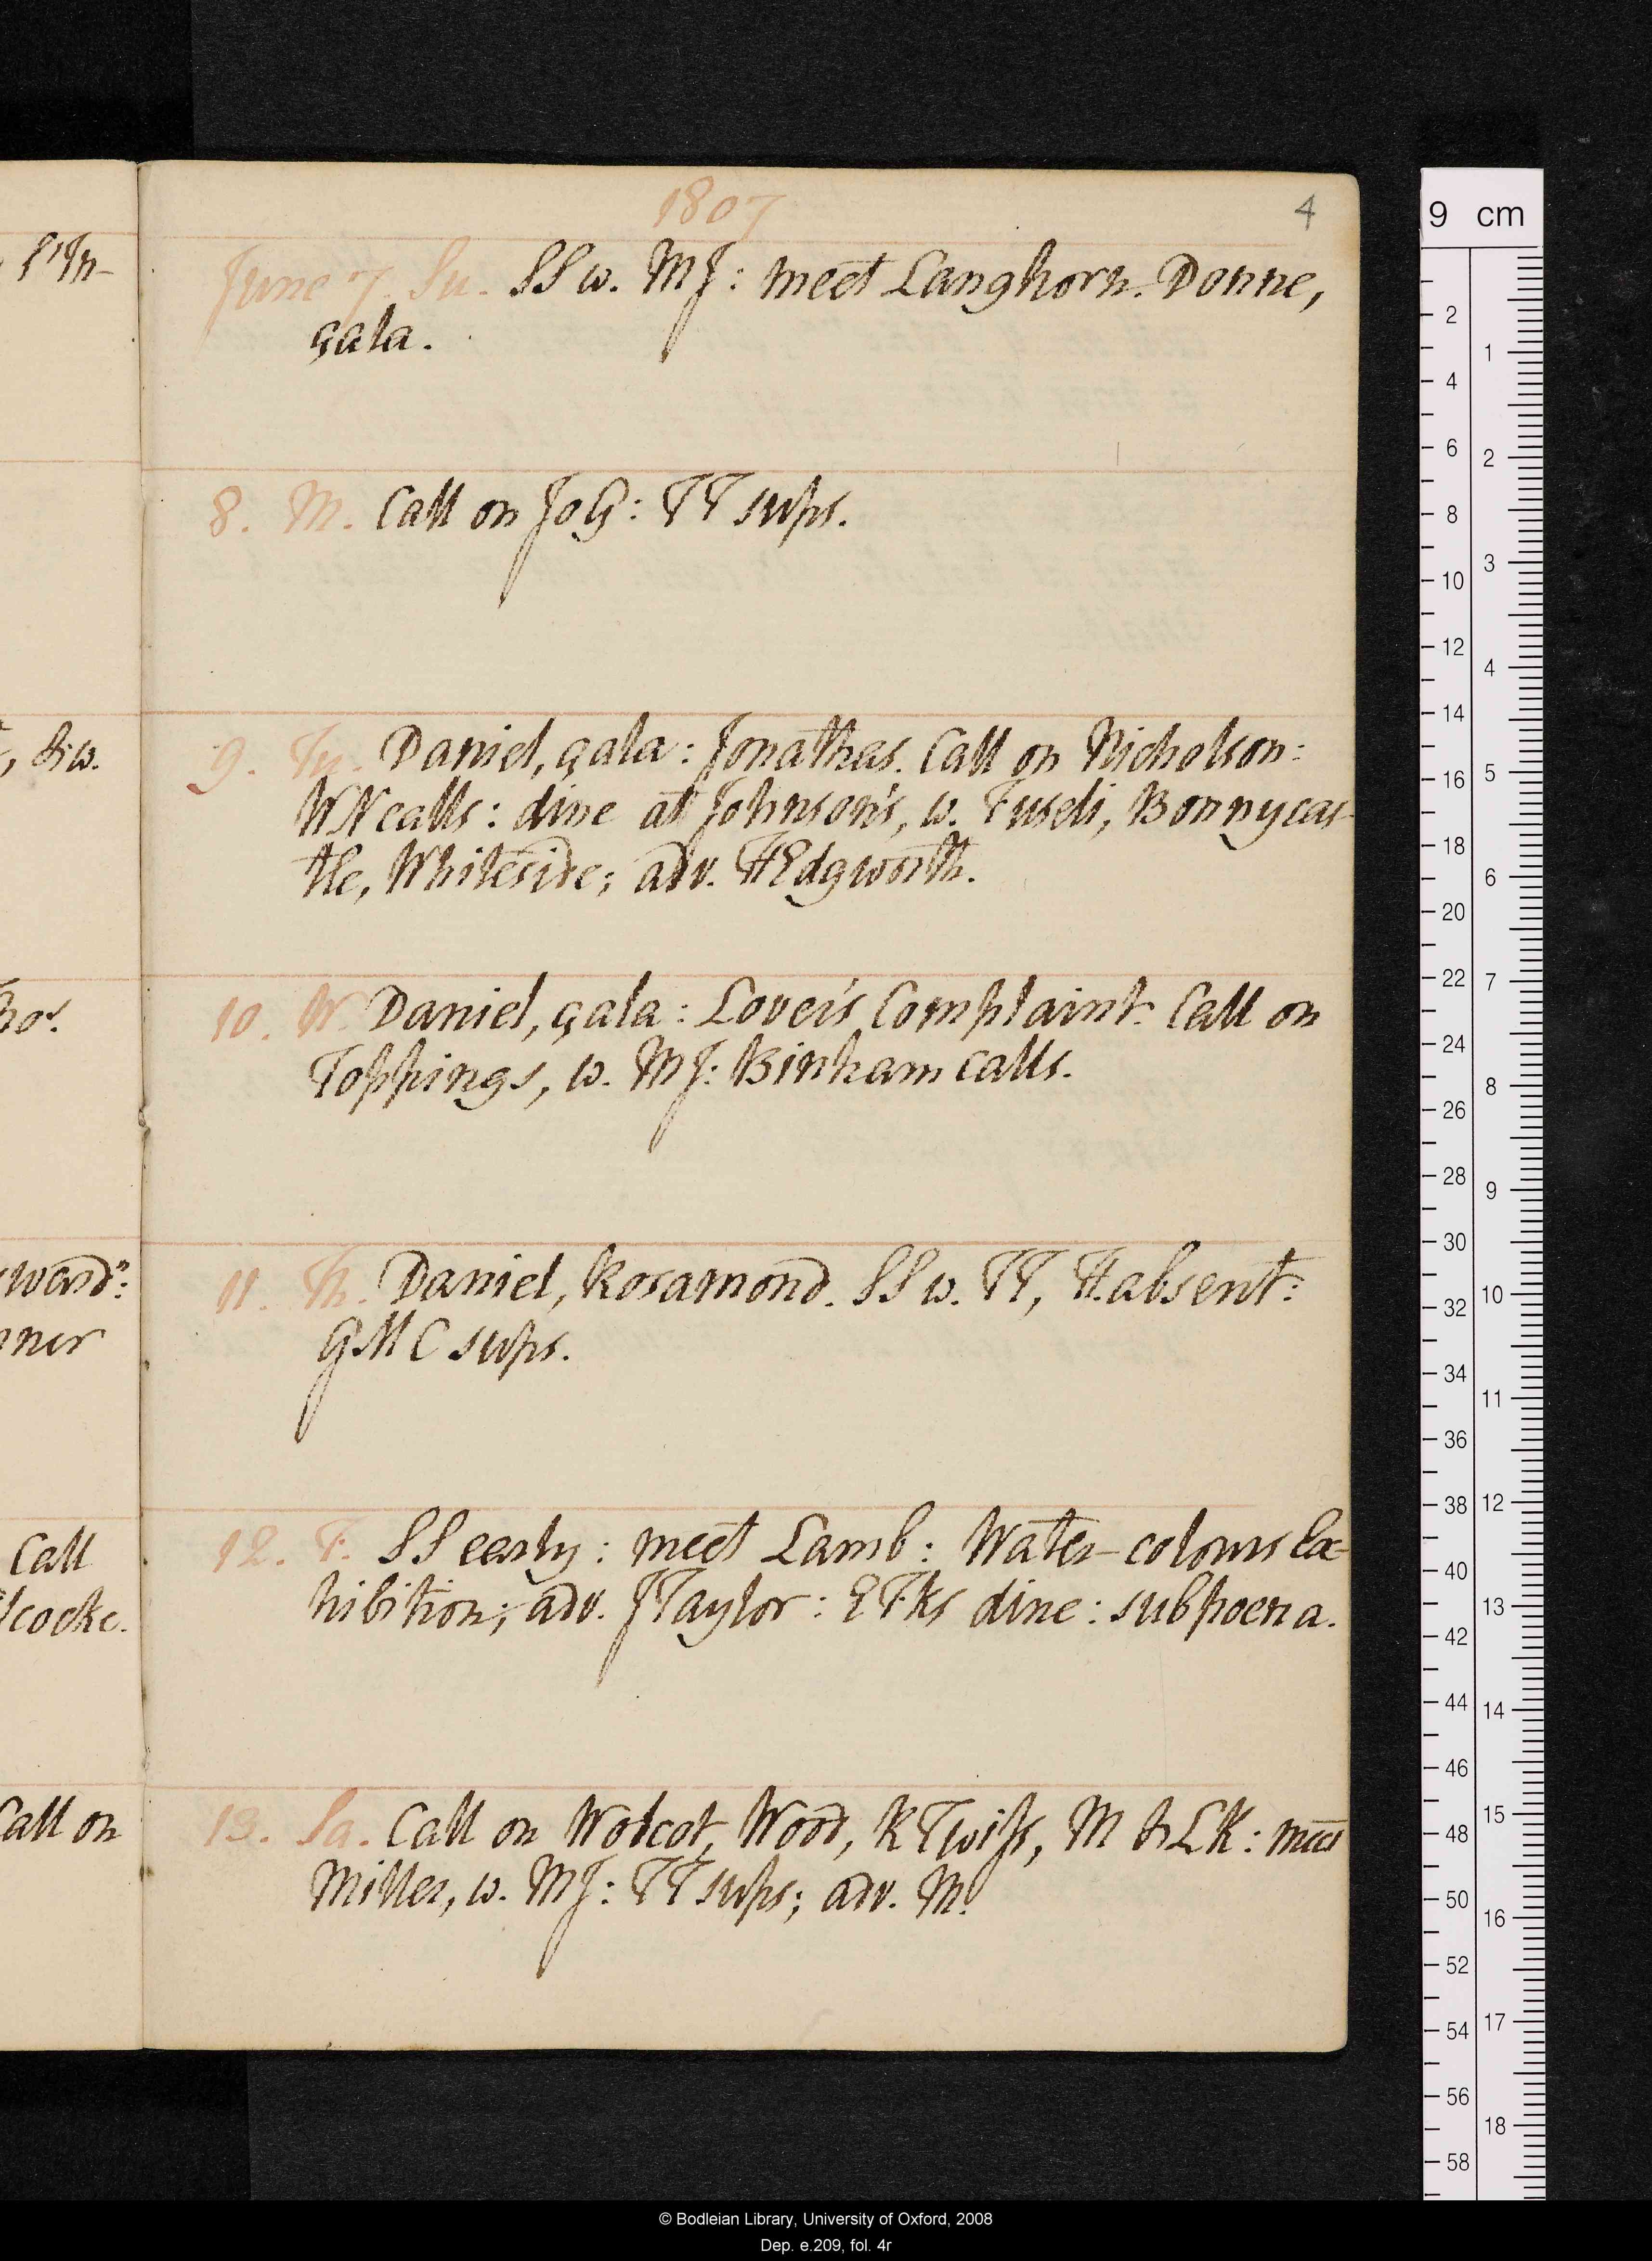 1807
4
June 7. Su. SS w. MJ: meet Langhorn. Donne,
çala.
8. M. Call on JoG: TT sups.
9. Tu. Daniel, çala: Jonathas. Call on Nicholson:
WN calls: dine at Johnson's, w. Fuseli, Bonnycas-
tle, Whiteside; adv. H Edgworth.
10. W. Daniel, çala: Lover's Complaint. Call on
Toppings, w. MJ: Binham calls.
11. Th. Daniel, Rosamond. SS w. TT, H. absent:
GMC sups.
12. F. SS early: meet Lamb: Water-colours Ex-
hibition; adv. J Taylor: EFks dine: subpoena.
13. Sa. Call on Wolcot, Wood, R Twiss, M & LK:
Miller, w. MJ: TT sups; adv. M.
, & w.
ward:
nner
Call
lcocke.
Call on
9 cm
2
4
6
8
10
12
14
16
18
20
22
24
26
28
30
32
34
36
38
40
42
44
46
48
50
52
54
56
58
1
2
3
4
5
6
7
8
9
10
11
12
13
14
15
16
17
18
© Bodleian Library, University of Oxford, 2008
Dep. e.209, fol. 4r